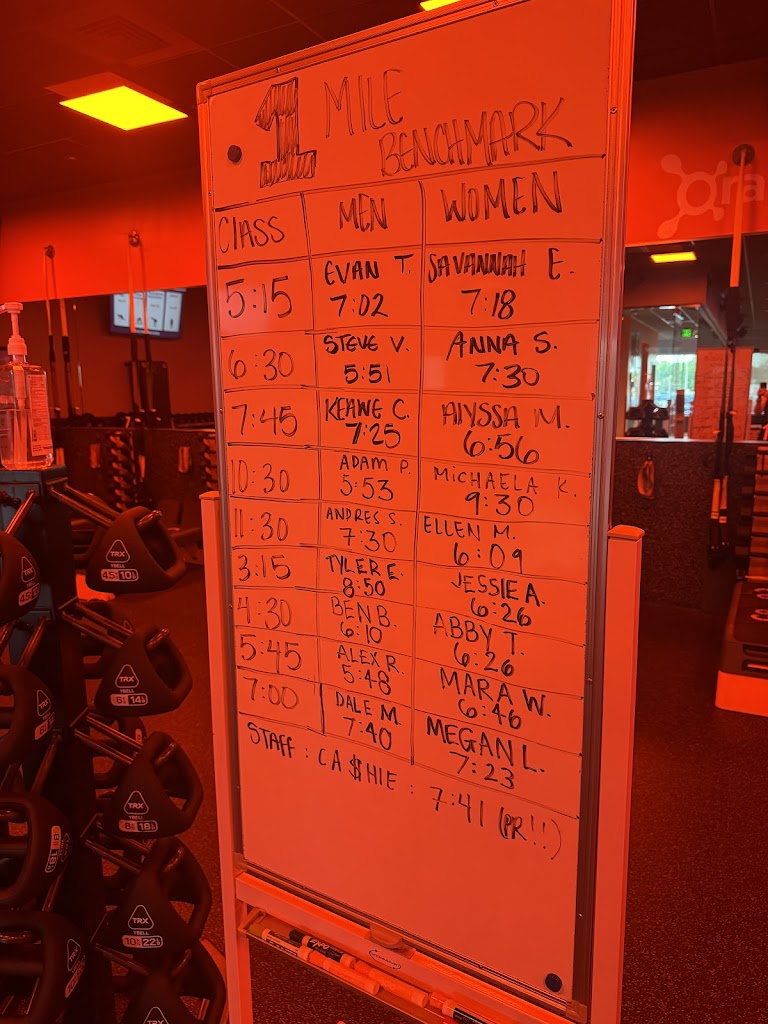 1 MILE
BENCHMARK
CLASS MEN WOMEN
5:15 EVAN T. 7:02 SAVANNAH E. 7:18
6:30 STEVE V. 5:51 ANNA S. 7:30
7:45 KEAWE C. 7:25 AlYSSA M. 6:56
10:30 ADAM P. 5:53 MiCHAELA K. 9:30
11:30 ANDRES S. 7:30 ELLEN M. 6:09
3:15 TYLER E. 8:50 JESSIE A. 6:26
4:30 BEN B. 6:10 ABBY T. 6:26
5:45 ALEX R. 5:48 MARA W. 6:46
7:00 DALE M. 7:40 MEGAN L. 7:23
STAFF : CA$HIE : 7:41 (PR!!)
Ora
TRX
YBELL
TRX
YBELL
TRX
YBELL
TRX
YBELL
TRX
TRX
TRX
TRX